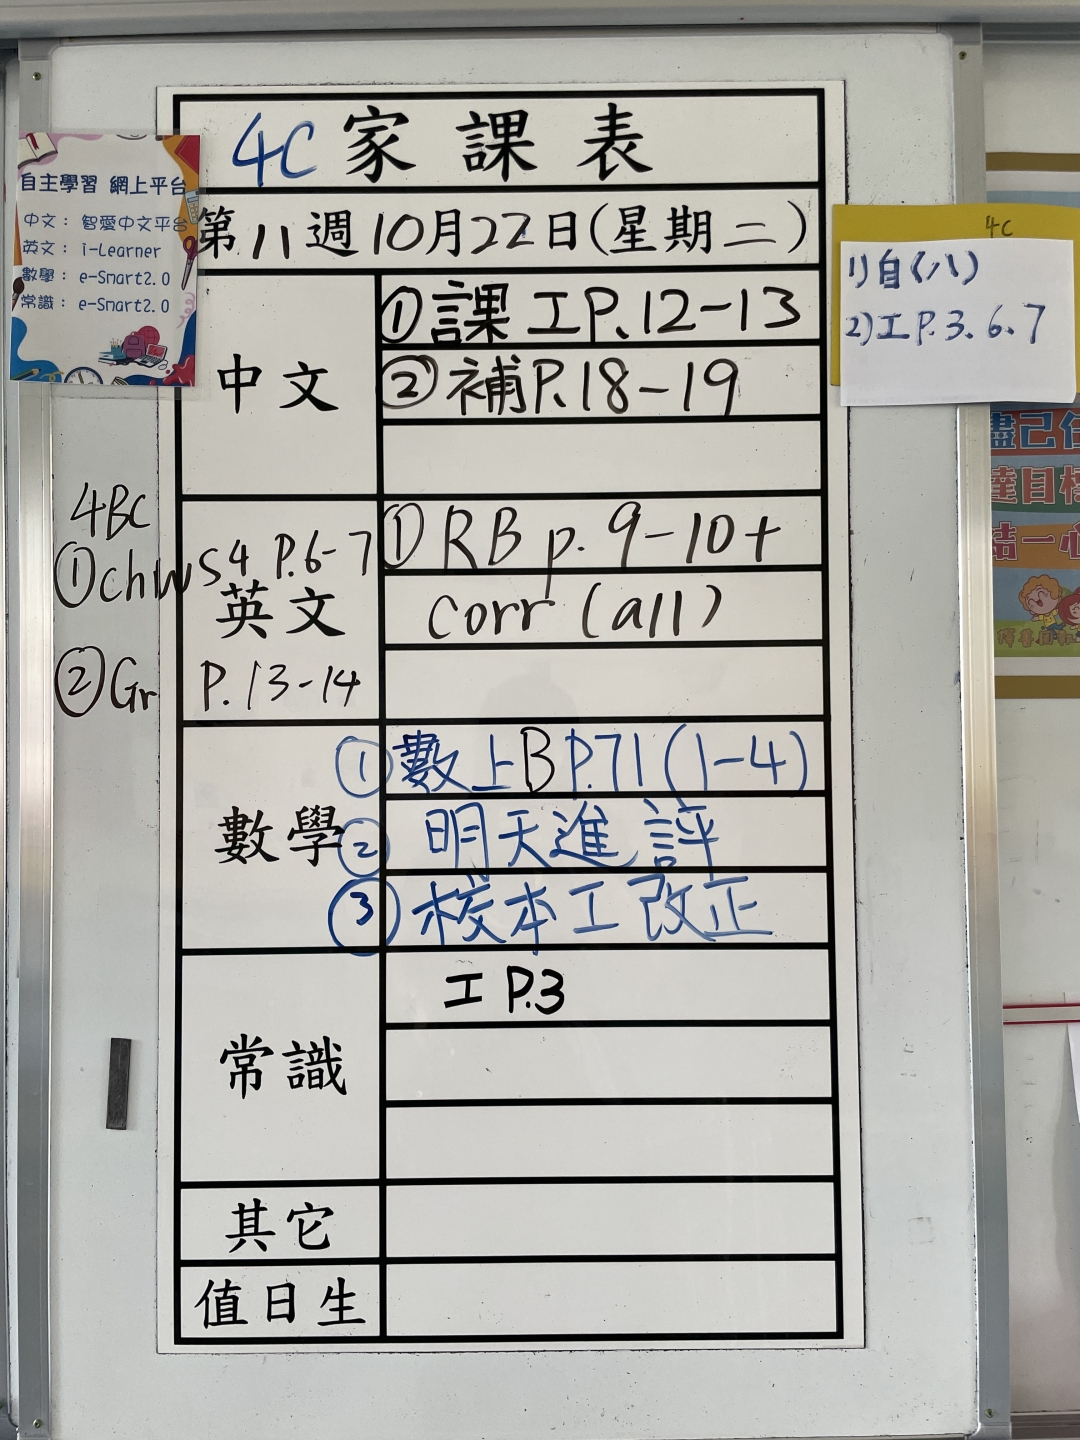 4C 家課表
自主學習 網上平台
中文： 智愛中文平台
英文： i-Learner
數學： e-Smart2.0
常識： e-Smart2.0
第八週10月22日(星期二)
4C
1)自(八)
2)工P.3、6、7
中文
①課工P.12-13
②補P.18-19
4BC
①chWS4 P.6-7
②Gr P.13-14
英文
①RB p.9-10+
corr (all)
數學
①數上B P.71(1-4)
②明天進評
③校本工改正
常識
工P.3
其它
值日生
盡己任
達目標
結一心